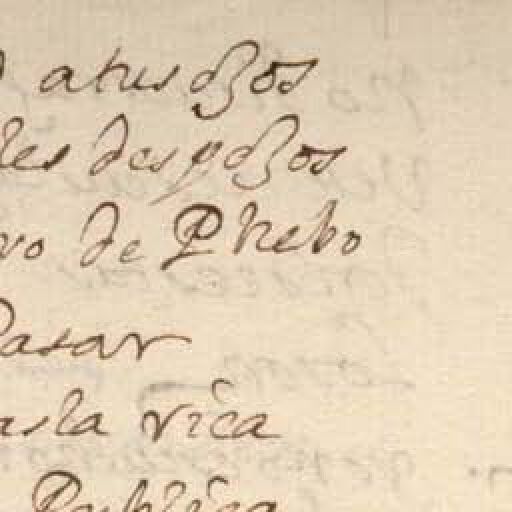 a tus ojos
les despojos
vo de Phebo
Pasar
asla rica
Publica